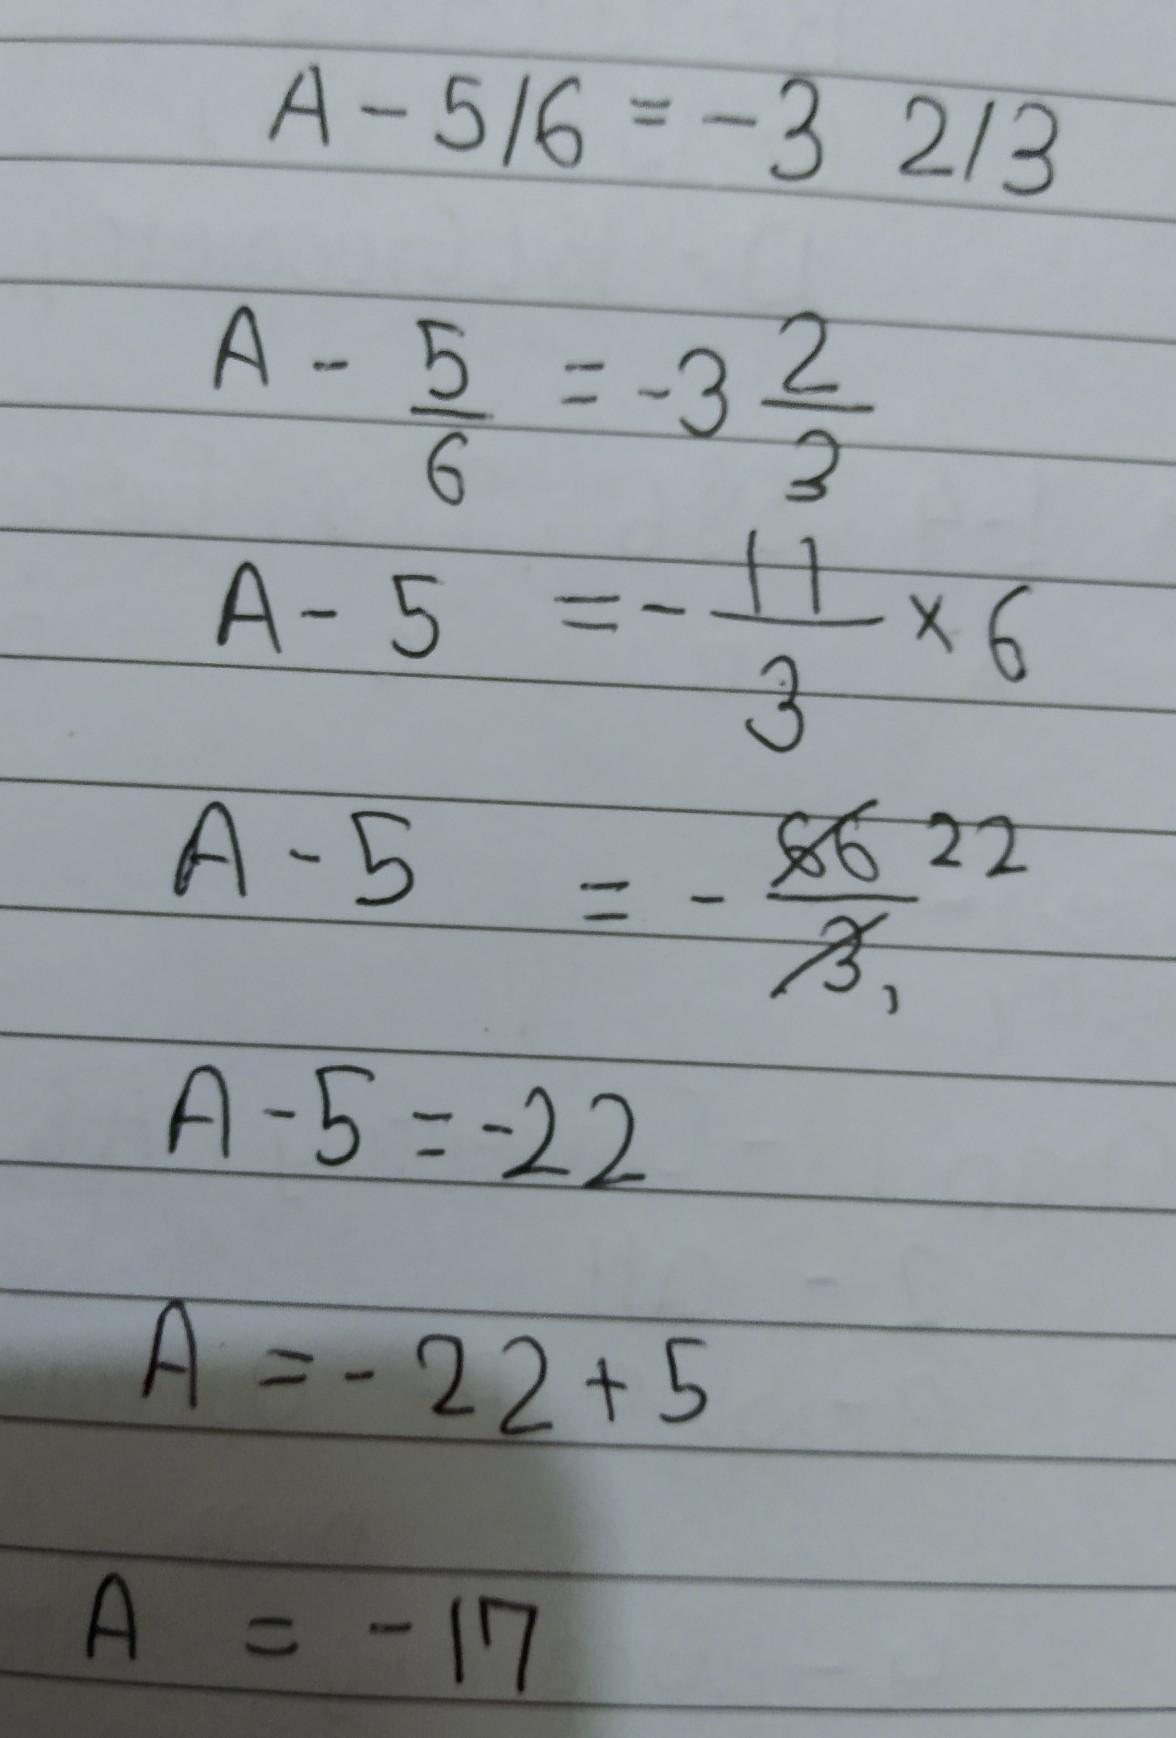 A - 5/6 = -3 2/3
A - 5/6 = -3 2/3
A - 5 = - 11/3 × 6
A - 5 = - 66/3 22 1
A - 5 = -22
A = - 22 + 5
A = - 17